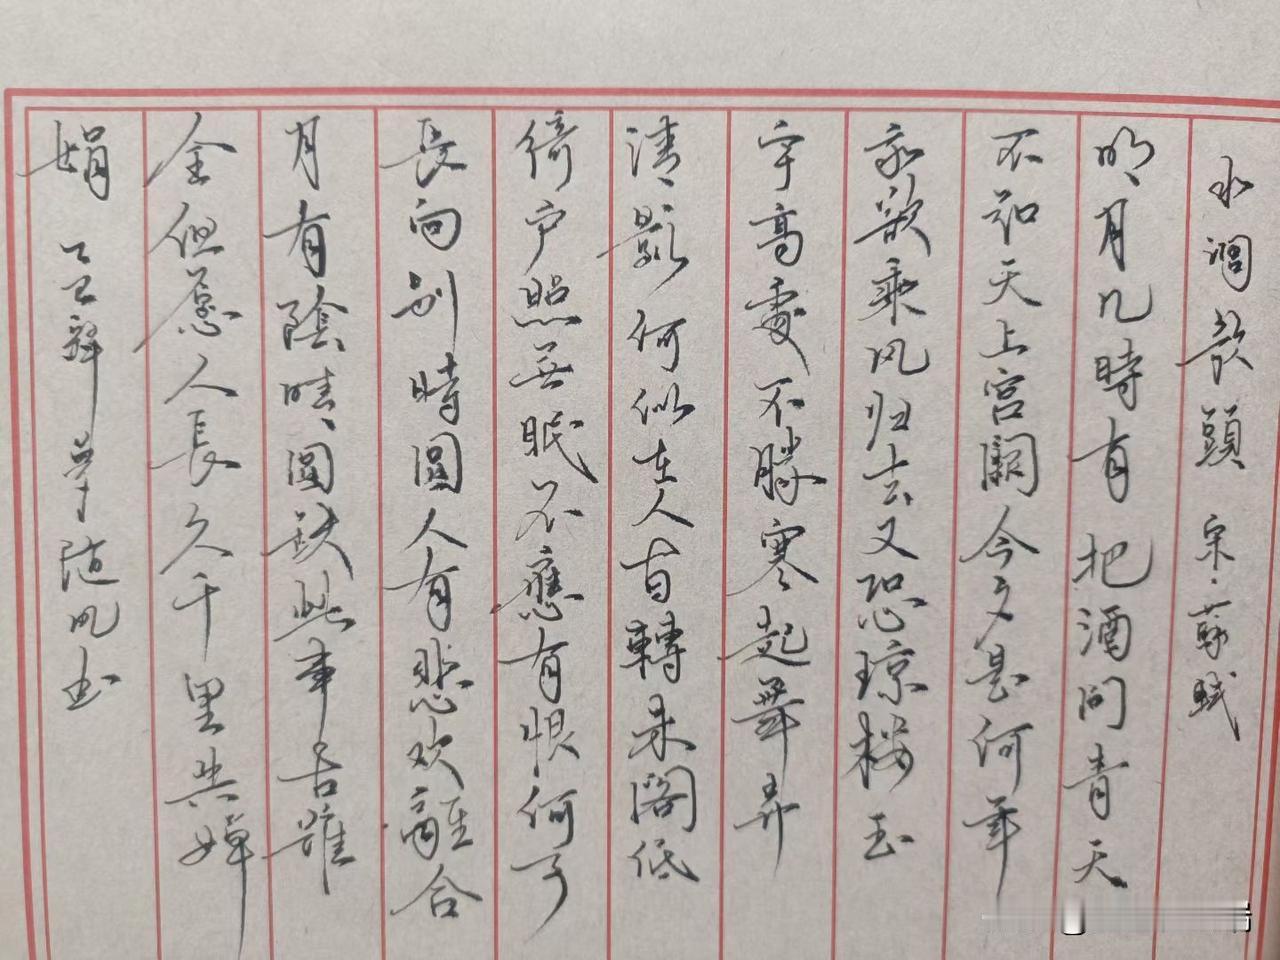 水調歌頭 宋·蘇軾
明月几時有把酒问青天
不知天上宫闕今夕是何年
我欲乘风归去又恐琼楼玉
宇高處不勝寒起舞弄
清影何似在人间轉朱閣低
绮户照無眠不應有恨何事
長向别時圓人有悲欢離合
月有陰晴圓缺此事古難
全但愿人長久千里共嬋
娟 随风书